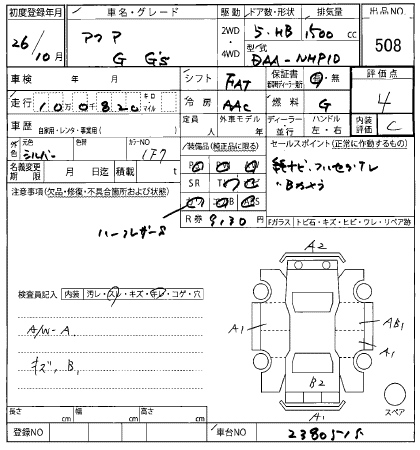 初度登録年月 車名・グレード 駆動 ドア数・形状 排気量 出品NO
26/10月 アクア G G's 2WD 4WD 5・HB 1500cc 508
型式 DAA-NHP10
車検 年 月 シフト FAT 保証書 有・無 評価点
走行 10万0820 キロ マイル 冷房 AAC 燃料 G 4
車歴 自家用・レンタ・事業用( ) 定員 外車モデル 年 ディーラー 並行 ハンドル 左・右 内装評価 C
外色 元色 シルバー 色替 カラーNO 1F7 装備品(純正品に限る) セールスポイント(正常に作動するもの)
名義変更期限 月 日迄 積載 t SR
注意事項(欠品・修復・不具合箇所および状態)
R券 9,130円 Fガラス トビ石・キズ・ヒビ・ワレ・リペア跡
A2
検査員記入 内装 汚レ・スレ・キズ・キレ・コゲ・穴
A1 AB1
A/W-A A1
キズ、B1 B2
A1 スペア
長さ cm 幅 cm 高さ cm
登録NO 車台NO